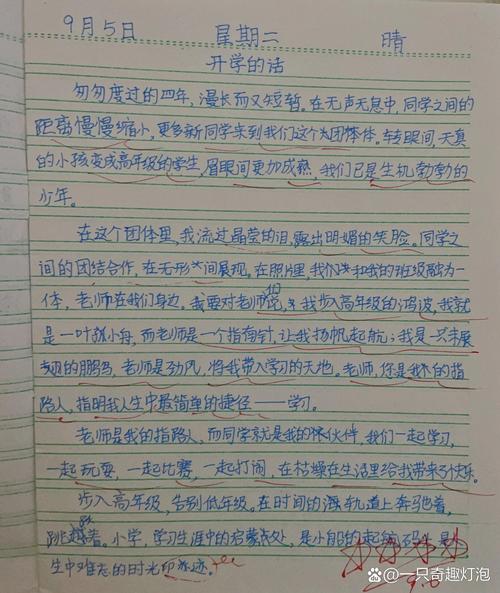 9月5日 星期二 晴
开学的话
匆匆度过的四年，漫长而又短暂。在无声无息中，同学之间的
距离慢慢缩小，更多新同学来到我们这个团体。转眼间，天真
的小孩变成高年级的学生，眉眼间更加成熟，我们已是生机勃勃的
少年。
在这个团体里，我流过晶莹的泪，露出明媚的笑脸。同学之
间的团结合作，在无形间展现。在照片里，我和我的班级融为一
体，老师在我们身边，我要对老师说，我步入高年级的鸿波，我就
是一叶小舟，而老师是一个指南针，让我扬帆起航；我是一只未展
翅的鹏鸟，老师是劲风，将我带入学习的天地。老师，您是我的指
路人，指明我人生中最简单的捷径——学习。
老师是我的指路人，而同学就是我的伙伴，我们一起学习，
一起玩耍，一起比赛，一起打闹，在枯燥在生活里给我带来了快乐。
步入高年级，告别低年级。在时间的轨道上奔驰着，
跳越着。小学，学习生涯中的启蒙处，是小船的起航码头，是
生中难忘的时光印迹。
@一只奇趣灯泡